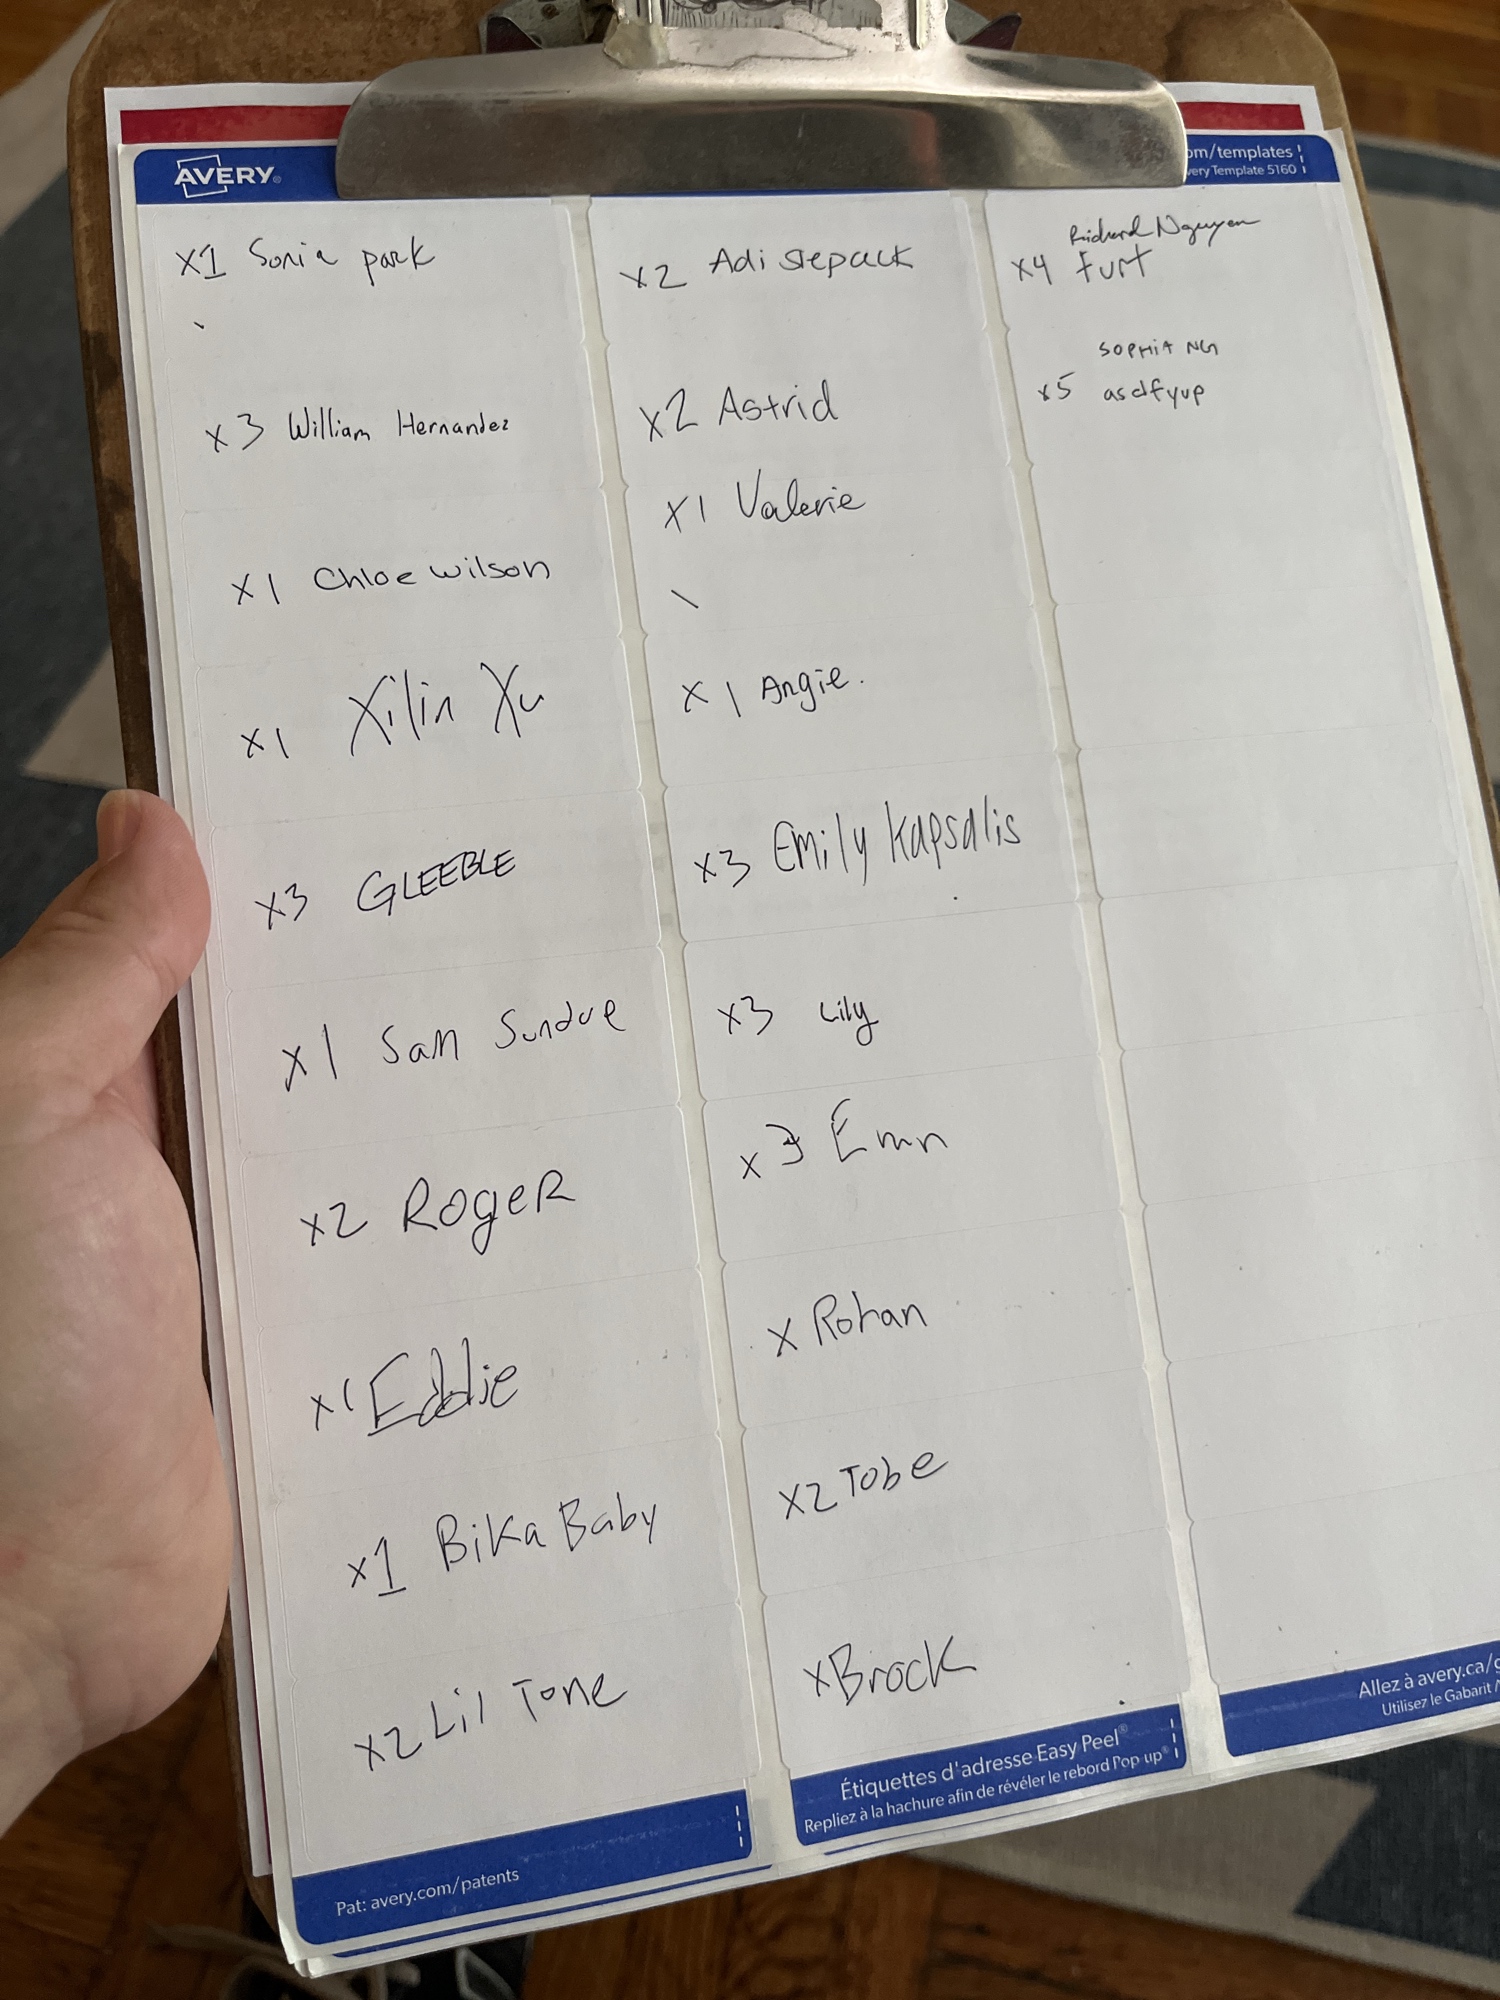 AVERY
om/templates
very Template 5160
x1 Sonia park
x3 William Hernandez
x1 Chloe wilson
x1 Xilin Xu
x3 GLEEBLE
x1 Sam Sundue
x2 RogeR
x1 Eddie
x1 Bika Baby
x2 Lil Tone
Pat: avery.com/patents
x2 Adi slepack
x2 Astrid
x1 Valerie
x1 Angie.
x3 Emily Kapsalis
x3 Lily
x3
x Rohan
x2 Tobe
x Brock
Étiquettes d'adresse Easy Peel®
Repliez à la hachure afin de révéler le rebord Pop-up®
Richard Nguyen
x4 furt
SOPHIA NG
x5 asdfyup
Allez à avery.ca/g
Utilisez le Gabarit